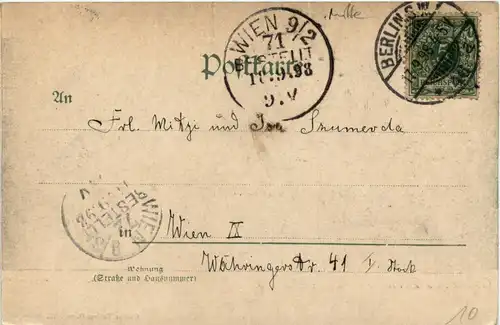 Mitte
WIEN 9/2
71
BESTELLT
18.9.98
9.V
BERLIN S.W.
Postkarte
An
Frl. Mitzi und Szumerda
WIEN
BESTELLT
in
Wien IX
Wohnung
(Straße und Hausnummer)
Währingerstr. 41 I. Stock
10